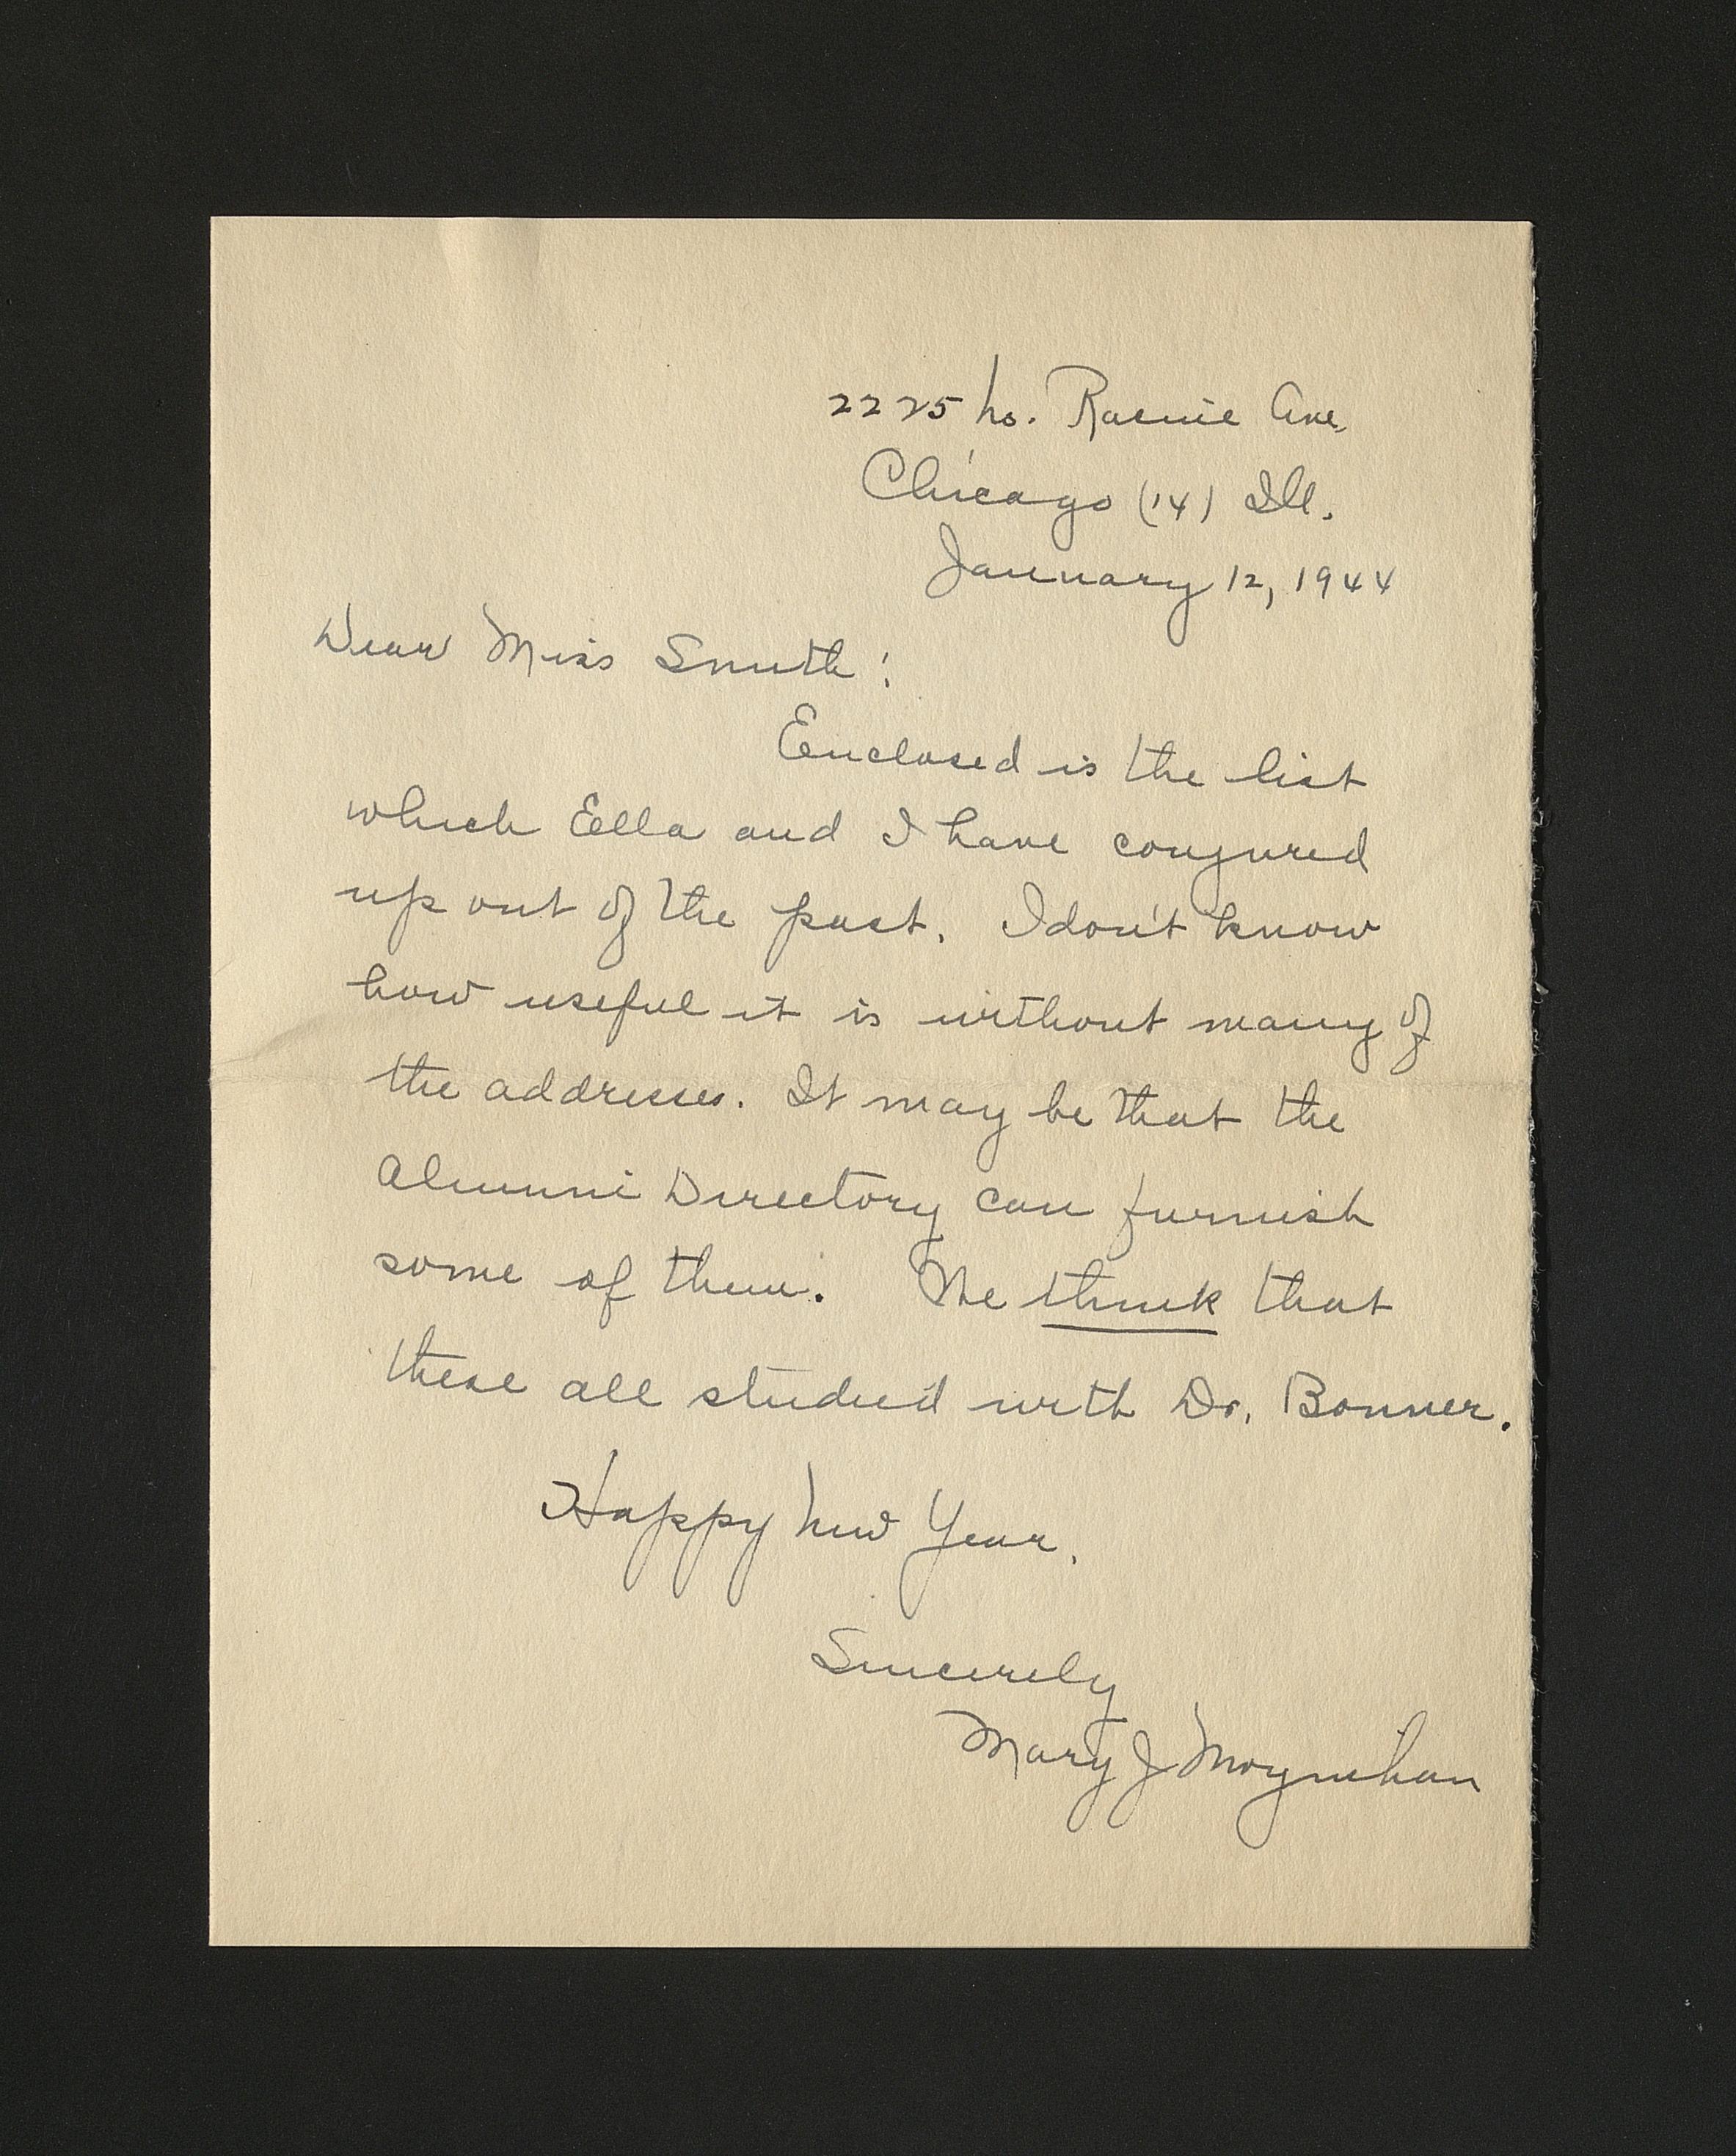 2225 No. Racine Ave.
Chicago (14) Ill.
January 12, 1944
Dear Miss Smith:
Enclosed is the list
which Ella and I have conjured
up out of the past. I don't know
how useful it is without many of
the addresses. It may be that the
Alumni Directory can furnish
some of them. We think that
these all studied with Dr. Bonner.
Happy New Year.
Sincerely
Mary J Moynihan